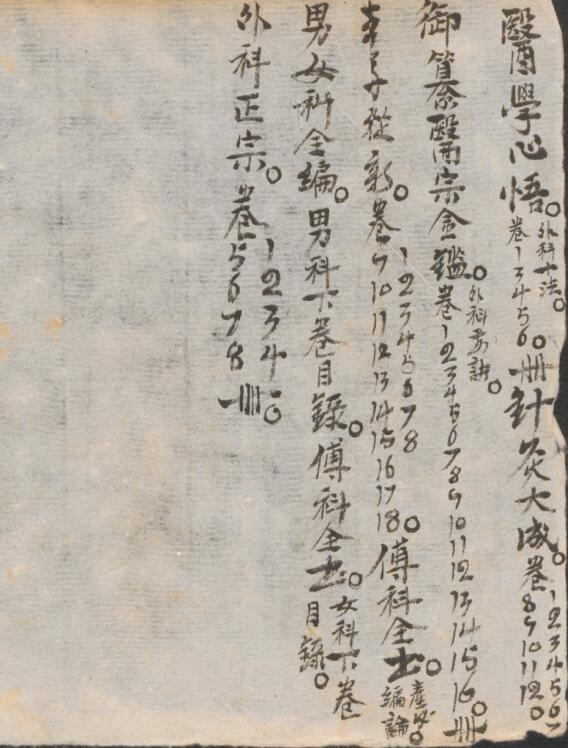 醫學心悟。外科十法。卷1 3 4 5 6。冊針灸大成。卷1 2 3 4 5 6 7 8 9 10 11 12。
御纂醫宗金鑑。外科要訣。卷1 2 3 4 5 6 7 8 9 10 11 12 13 14 15 16。冊
本草從新。卷1 2 3 4 5 6 7 8 9 10 11 12 13 14 15 16 17 18。傅科全士。產後編論。
男女科全編。男科下卷目錄。傅科全士。女科下卷目錄。
外科正宗。卷1 2 3 4 5 6 7 8 冊